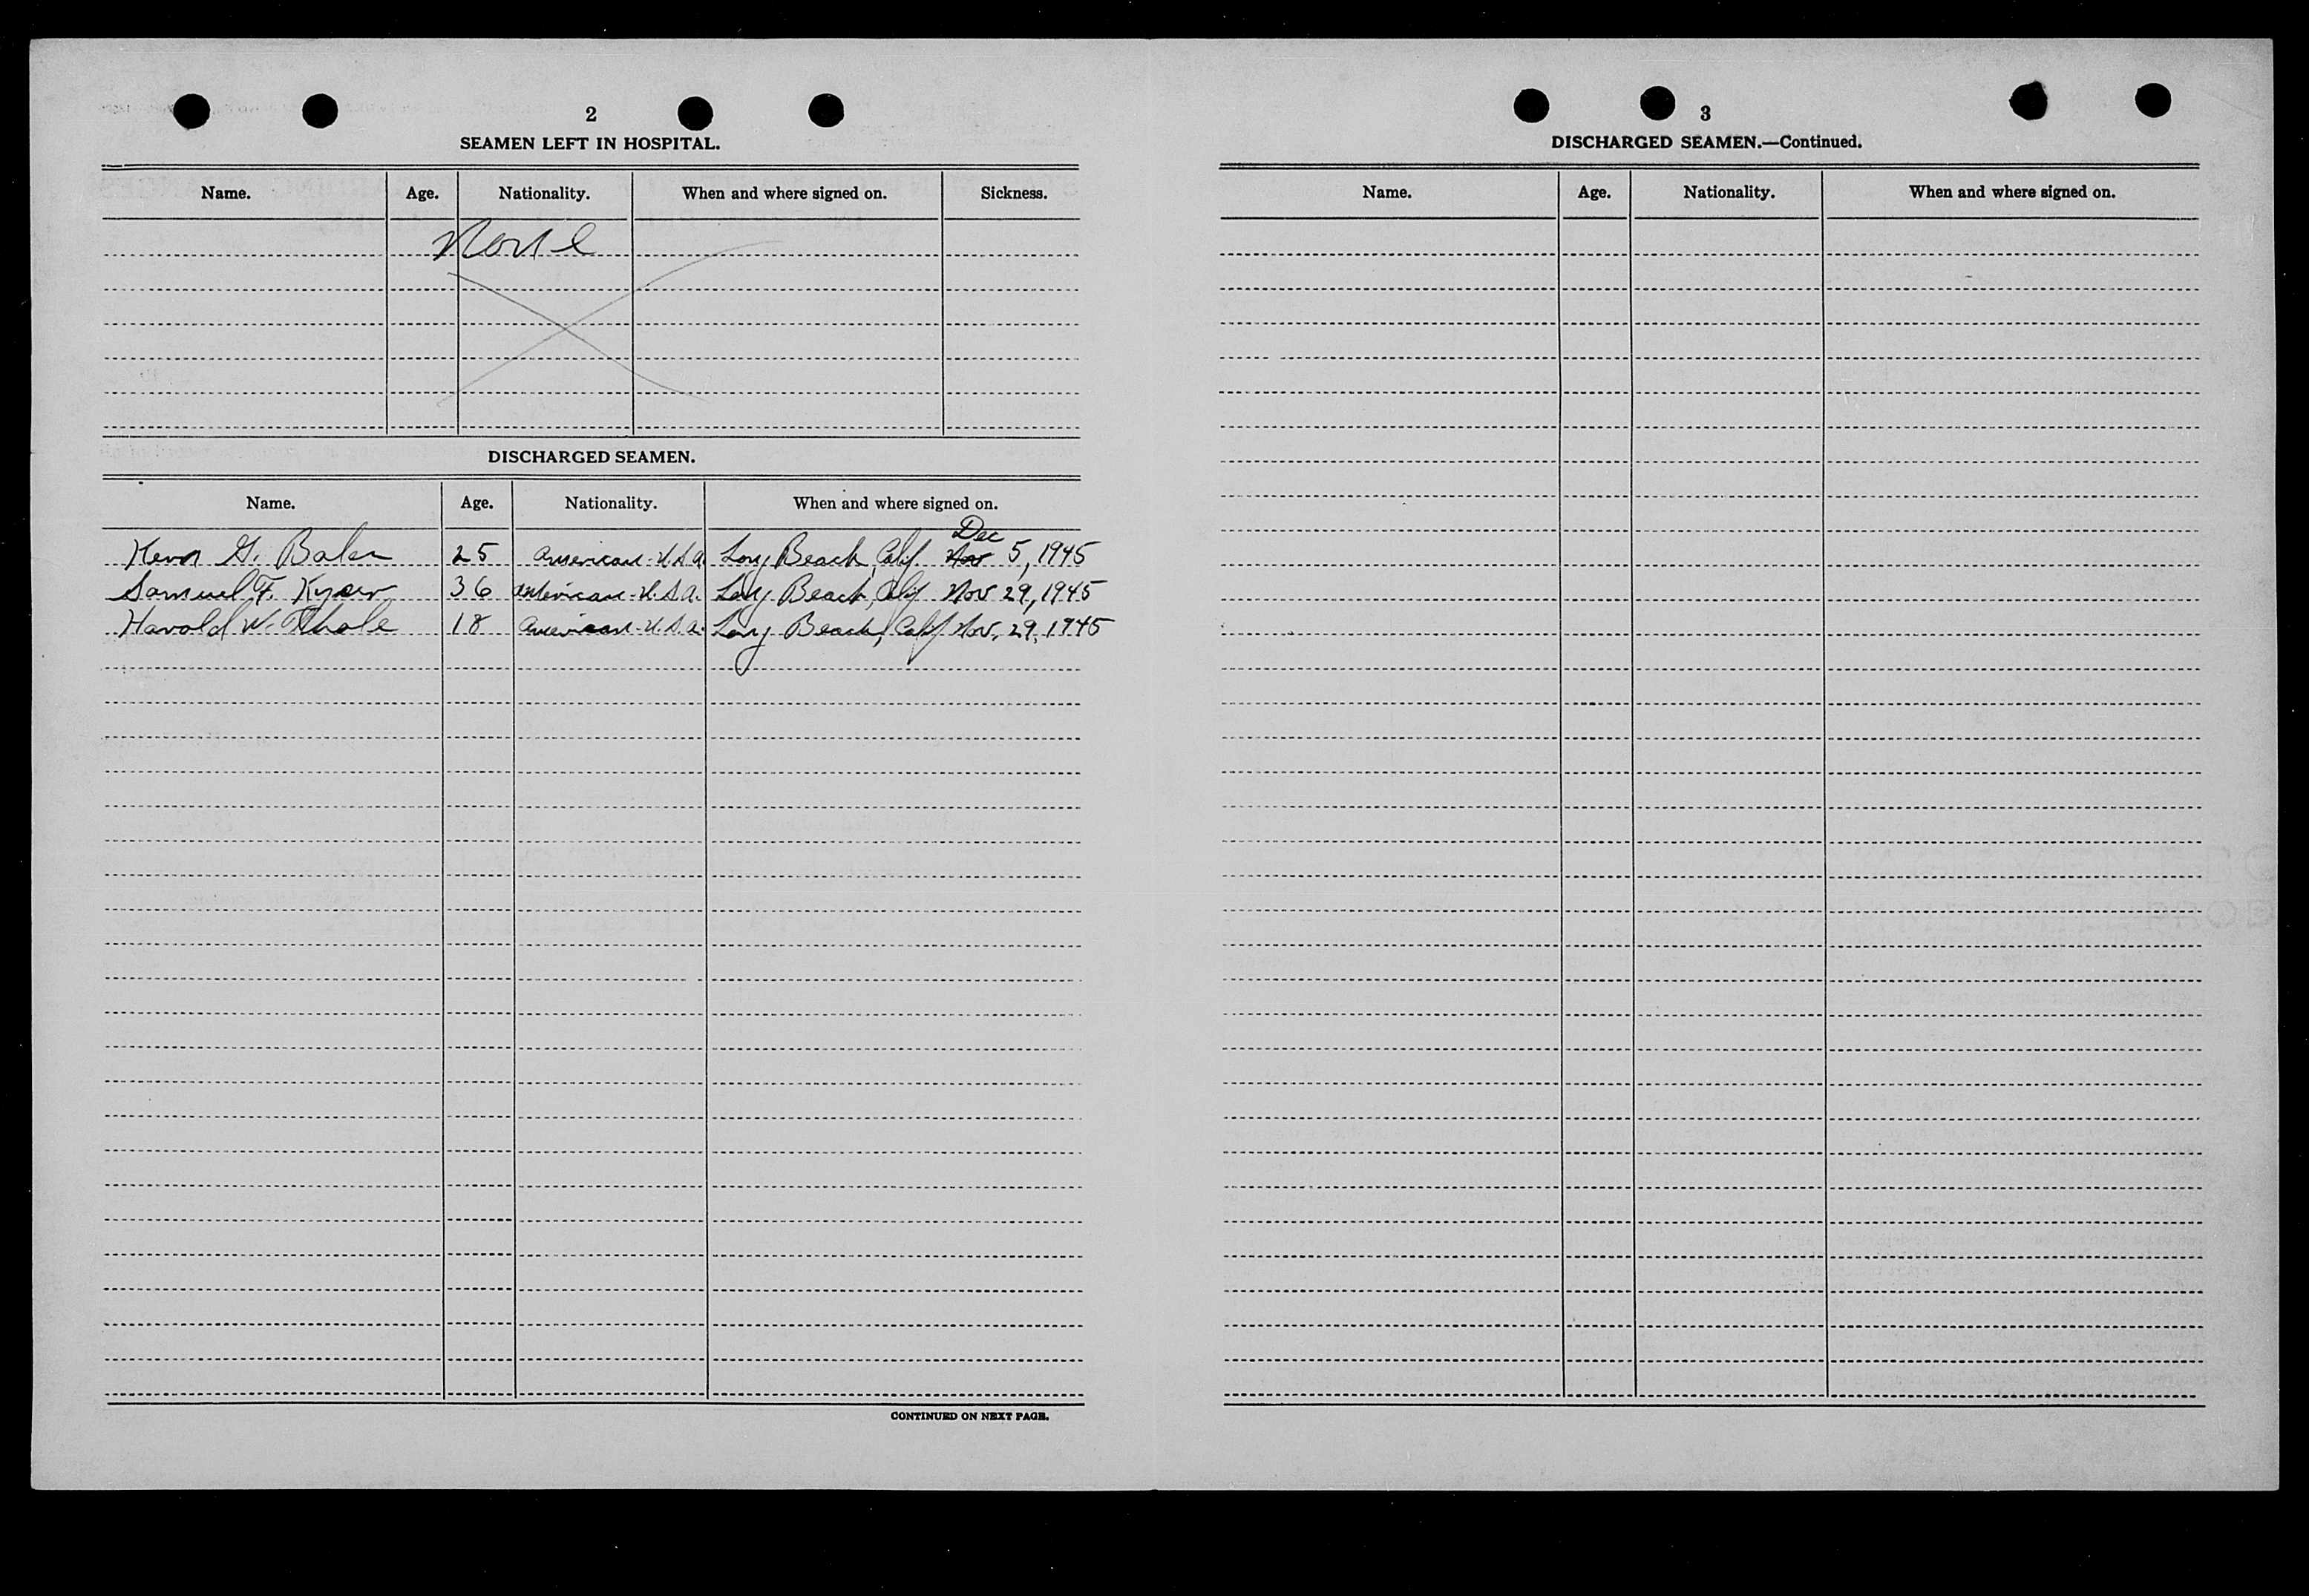 2
SEAMEN LEFT IN HOSPITAL.
Name. Age. Nationality. When and where signed on. Sickness.
None
DISCHARGED SEAMEN.
Name. Age. Nationality. When and where signed on.
Dec
G. 25 American-U.S.A. Long Beach, Calif. Nov 5, 1945
Samuel F. Kyser 36 American-U.S.A. Long Beach, Calif Nov 29, 1945
Harold W. 18 American-U.S.A. Long Beach, Calif Nov, 29, 1945
CONTINUED ON NEXT PAGE.
3
DISCHARGED SEAMEN.—Continued.
Name. Age. Nationality. When and where signed on.